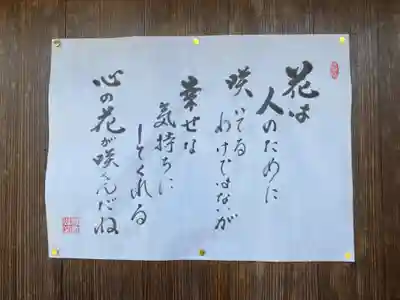 花は
人のために
咲いてる
わけじゃないが
幸せな
気持ちに
してくれる
心の花が咲くんだね